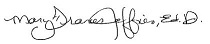 Mary Frances Jeffries, Ed.D.